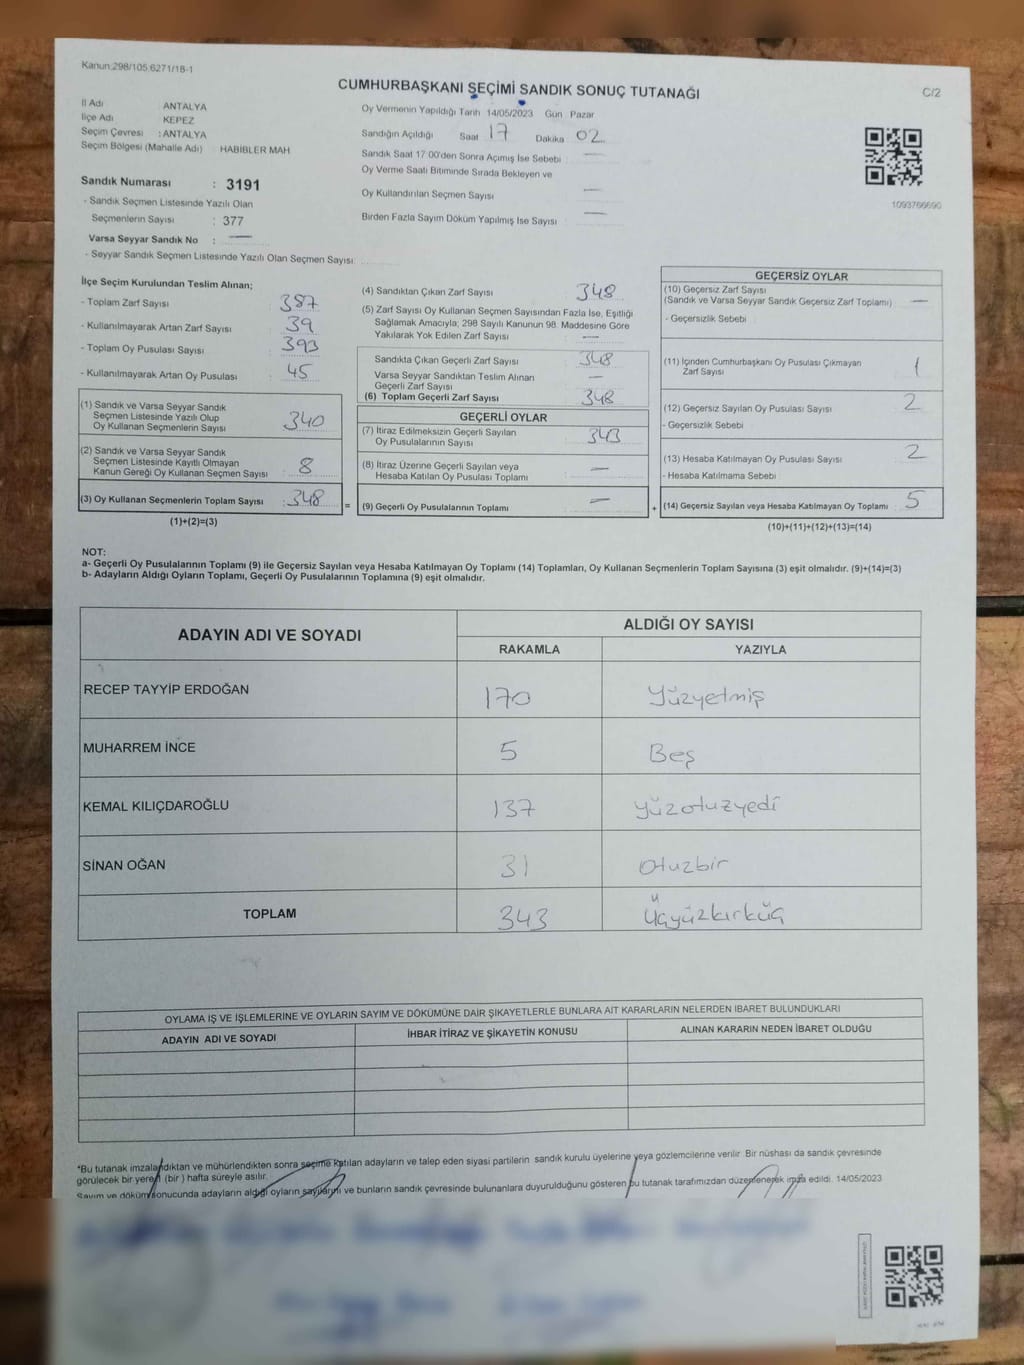 Kanun:298/105,6271/18-1
CUMHURBAŞKANI SEÇİMİ SANDIK SONUÇ TUTANAĞI
C/2
İl Adı ANTALYA
İlçe Adı KEPEZ
Seçim Çevresi : ANTALYA
Seçim Bölgesi (Mahalle Adı) HABİBLER MAH
Sandık Numarası : 3191
- Sandık Seçmen Listesinde Yazılı Olan
Seçmenlerin Sayısı : 377
Varsa Seyyar Sandık No : —
- Seyyar Sandık Seçmen Listesinde Yazılı Olan Seçmen Sayısı:
Oy Vermenin Yapıldığı Tarih 14/05/2023 Gün Pazar
Sandığın Açıldığı Saat 17 Dakika 02
Sandık Saat 17:00'den Sonra Açımış İse Sebebi —
Oy Verme Saati Bitiminde Sırada Bekleyen ve
Oy Kullandırılan Seçmen Sayısı —
Birden Fazla Sayım Döküm Yapılmış İse Sayısı —
1093766690
İlçe Seçim Kurulundan Teslim Alınan;
- Toplam Zarf Sayısı 387
- Kullanılmayarak Artan Zarf Sayısı 39
- Toplam Oy Pusulası Sayısı 393
- Kullanılmayarak Artan Oy Pusulası 45
(1) Sandık ve Varsa Seyyar Sandık
Seçmen Listesinde Yazılı Olup
Oy Kullanan Seçmenlerin Sayısı 340
(2) Sandık ve Varsa Seyyar Sandık
Seçmen Listesinde Kayıtlı Olmayan
Kanun Gereği Oy Kullanan Seçmen Sayısı 8
(3) Oy Kullanan Seçmenlerin Toplam Sayısı : 348 =
(1)+(2)=(3)
(4) Sandıktan Çıkan Zarf Sayısı 348
(5) Zarf Sayısı Oy Kullanan Seçmen Sayısından Fazla İse, Eşitliği
Sağlamak Amacıyla; 298 Sayılı Kanunun 98. Maddesine Göre
Yakılarak Yok Edilen Zarf Sayısı —
Sandıkta Çıkan Geçerli Zarf Sayısı 348
Varsa Seyyar Sandıktan Teslim Alınan
Geçerli Zarf Sayısı —
(6) Toplam Geçerli Zarf Sayısı 348
GEÇERLİ OYLAR
(7) İtiraz Edilmeksizin Geçerli Sayılan
Oy Pusulalarının Sayısı 343
(8) İtiraz Üzerine Geçerli Sayılan veya
Hesaba Katılan Oy Pusulası Toplamı —
(9) Geçerli Oy Pusulalarının Toplamı — +
GEÇERSİZ OYLAR
(10) Geçersiz Zarf Sayısı
(Sandık ve Varsa Seyyar Sandık Geçersiz Zarf Toplamı) —
- Geçersizlik Sebebi
(11) İçinden Cumhurbaşkanı Oy Pusulası Çıkmayan
Zarf Sayısı 1
(12) Geçersiz Sayılan Oy Pusulası Sayısı 2
- Geçersizlik Sebebi
(13) Hesaba Katılmayan Oy Pusulası Sayısı 2
- Hesaba Katılmama Sebebi
(14) Geçersiz Sayılan veya Hesaba Katılmayan Oy Toplamı 5
(10)+(11)+(12)+(13)=(14)
NOT:
a- Geçerli Oy Pusulalarının Toplamı (9) ile Geçersiz Sayılan veya Hesaba Katılmayan Oy Toplamı (14) Toplamları, Oy Kullanan Seçmenlerin Toplam Sayısına (3) eşit olmalıdır. (9)+(14)=(3)
b- Adayların Aldığı Oyların Toplamı, Geçerli Oy Pusulalarının Toplamına (9) eşit olmalıdır.
ADAYIN ADI VE SOYADI
ALDIĞI OY SAYISI
RAKAMLA YAZIYLA
RECEP TAYYİP ERDOĞAN 170 Yüzyetmiş
MUHARREM İNCE 5 Beş
KEMAL KILIÇDAROĞLU 137 yüzotuzyedi
SİNAN OĞAN 31 otuzbir
TOPLAM 343 Üçyüzkırküç
OYLAMA İŞ VE İŞLEMLERİNE VE OYLARIN SAYIM VE DÖKÜMÜNE DAİR ŞİKAYETLERLE BUNLARA AİT KARARLARIN NELERDEN İBARET BULUNDUKLARI
ADAYIN ADI VE SOYADI İHBAR İTİRAZ VE ŞİKAYETİN KONUSU ALINAN KARARIN NEDEN İBARET OLDUĞU
*Bu tutanak imzalandıktan ve mühürlendikten sonra seçime katılan adayların ve talep eden siyasi partilerin sandık kurulu üyelerine veya gözlemcilerine verilir. Bir nüshası da sandık çevresinde
görülecek bir yere 1 (bir) hafta süreyle asılır.
Sayım ve döküm sonucunda adayların aldığı oyların sayılarını ve bunların sandık çevresinde bulunanlara duyurulduğunu gösteren bu tutanak tarafımızdan düzenlenerek imza edildi. 14/05/2023